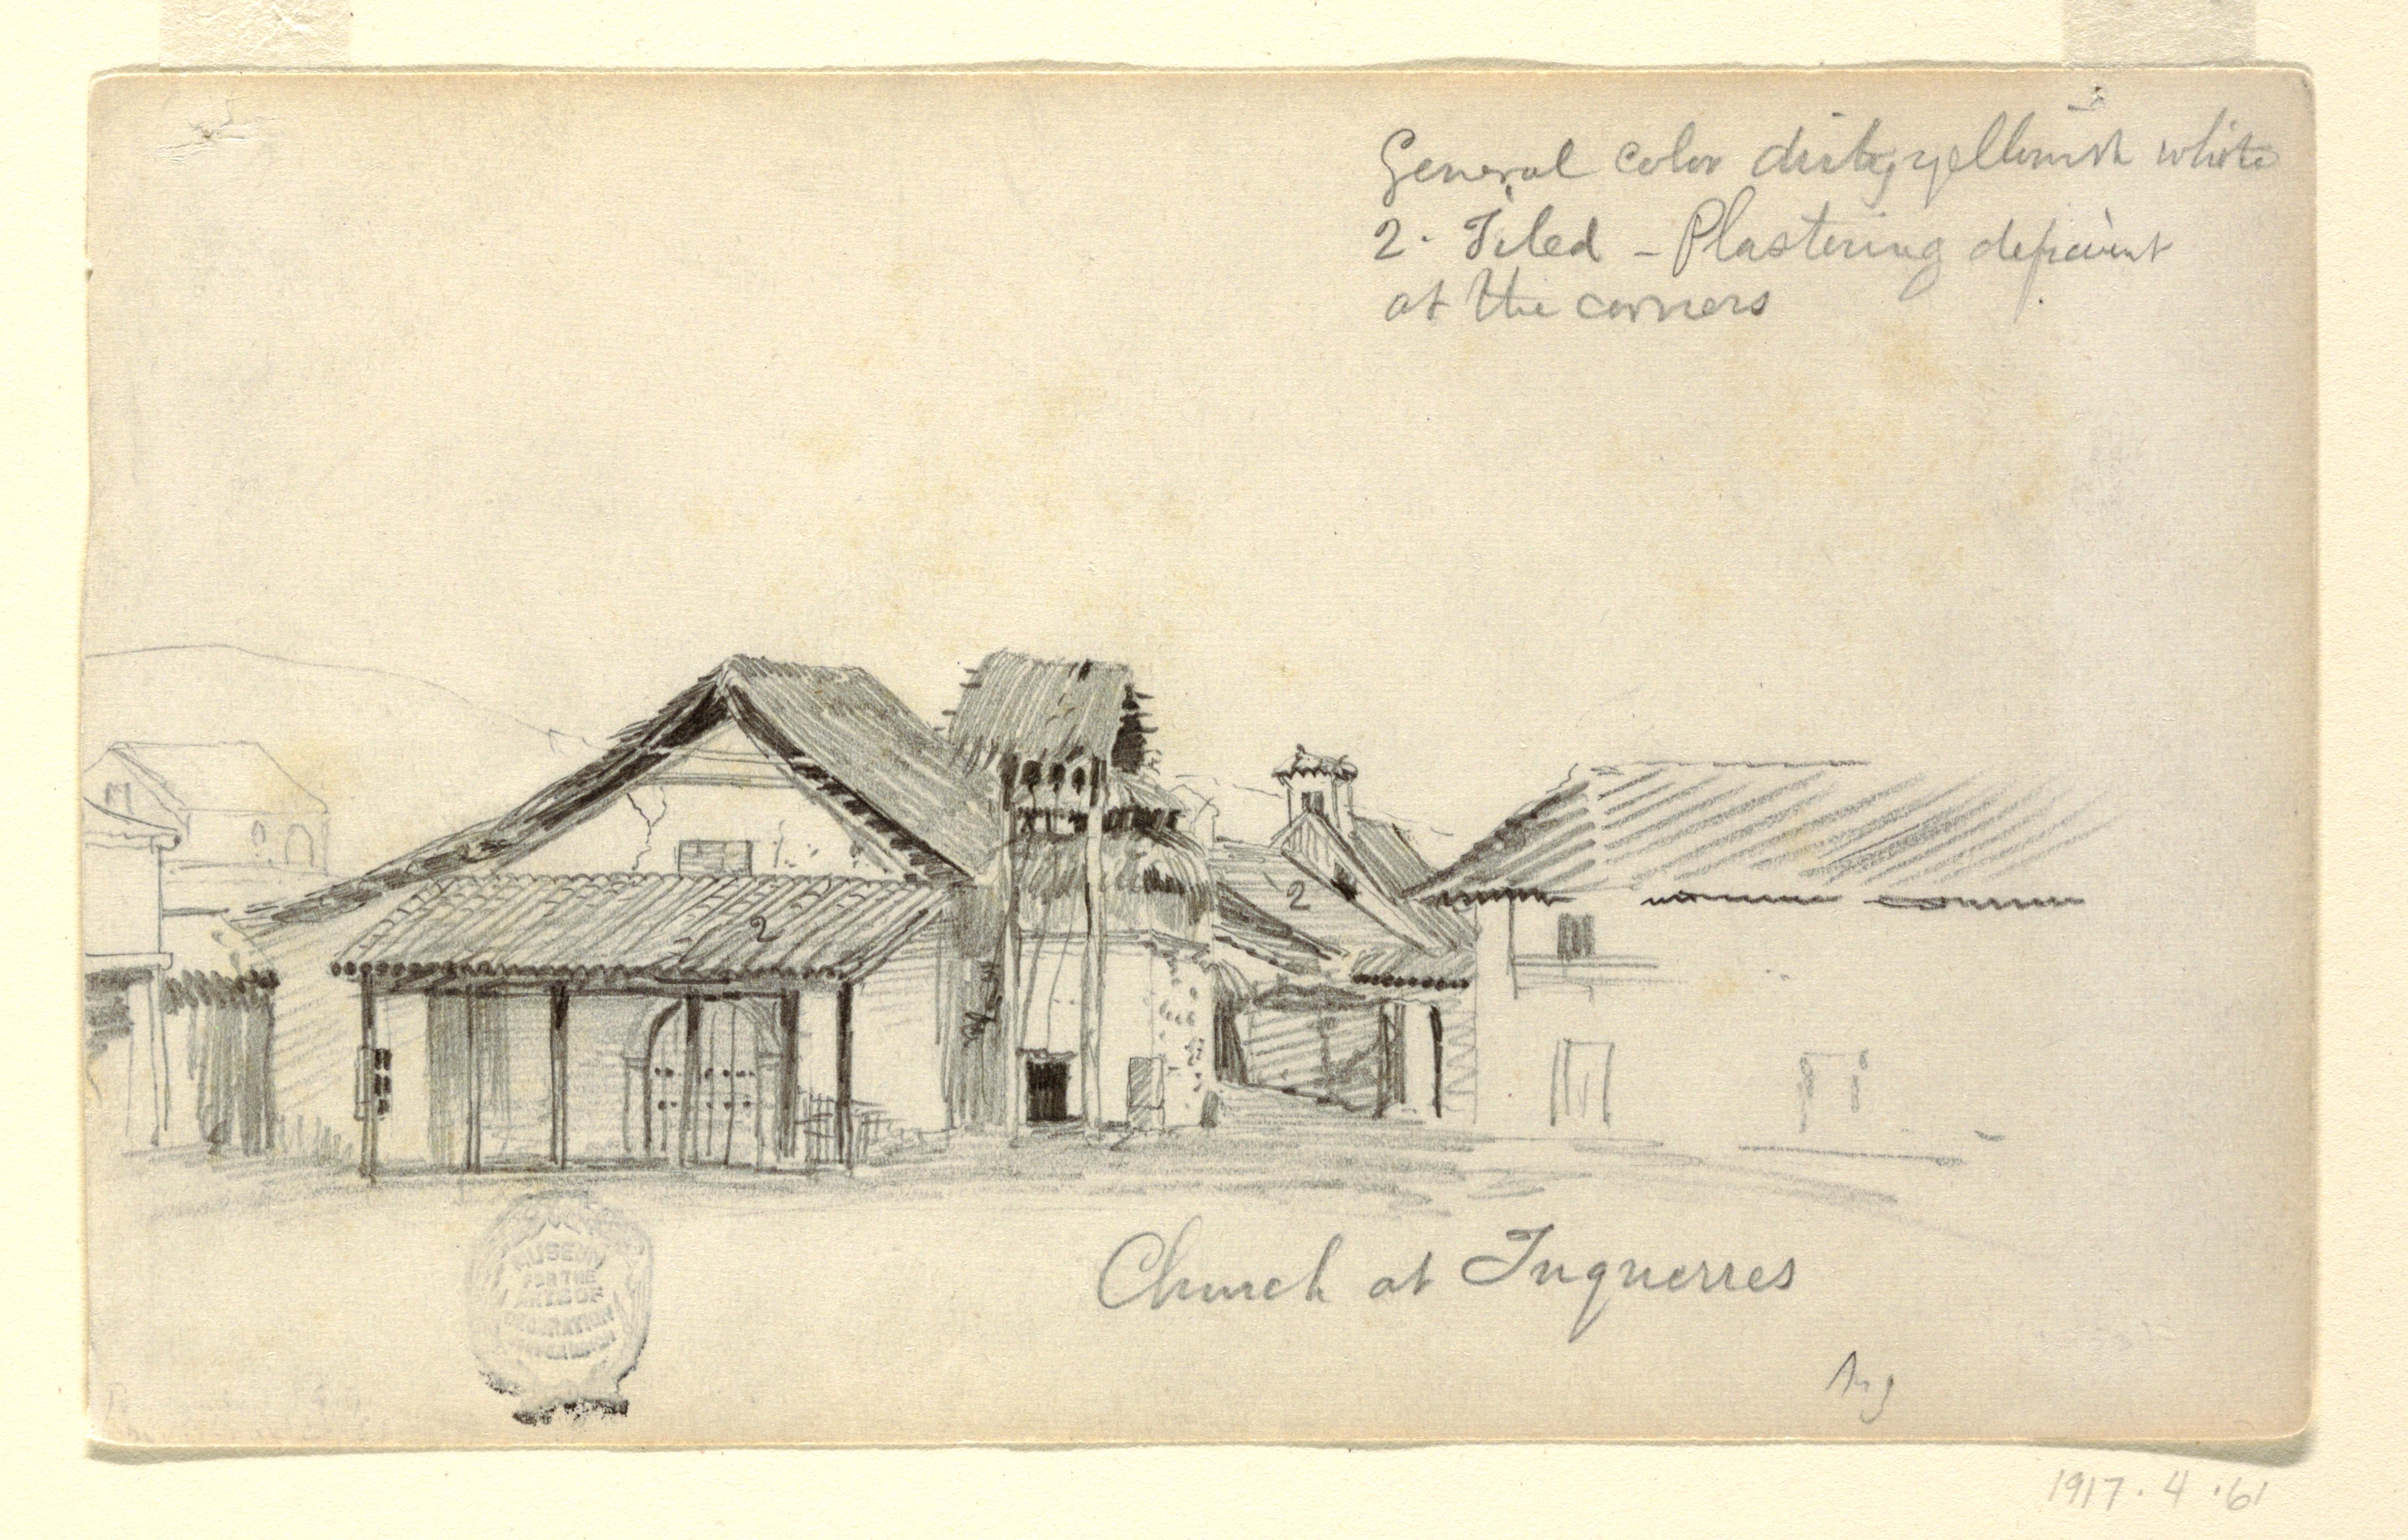 General color dirty, yellowish white
2. Tiled – Plastering deficient
at the corners
2
2
Church at Tuquerres
MUSEUM
FOR THE
ARTS OF
DECORATION
1917.4.61